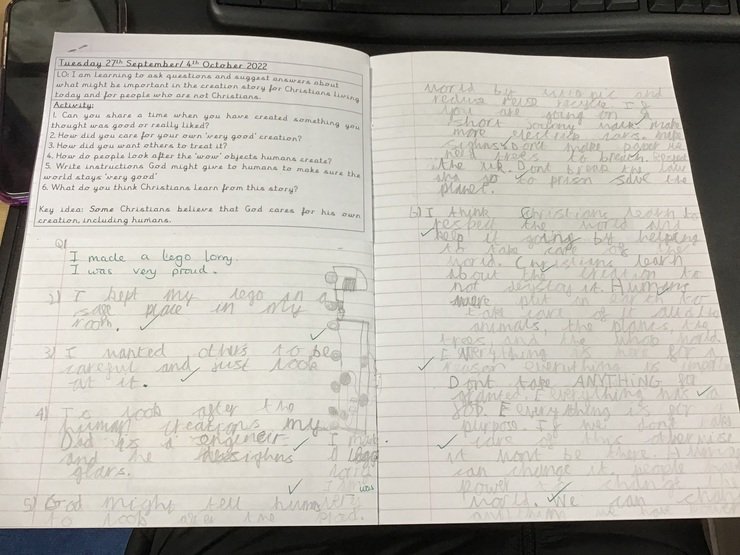 Tuesday 27th September/ 4th October 2022
LO: I am learning to ask questions and suggest answers about
what might be important in the creation story for Christians living
today and for people who are not Christians.
Activity:
1. Can you share a time when you have created something you
thought was good or really liked?
2. How did you care for your own 'very good' creation?
3. How did you want others to treat it?
4. How do people look after the 'wow' objects humans create?
5. Write instructions God might give to humans to make sure the
world stays 'very good'
6. What do you think Christians learn from this story?
Key idea: Some Christians believe that God cares for his own
creation, including humans.
Q1
I made a Lego lorry.
I was very proud.
2) I kept my lego in a
safe place in my
room.
3) I wanted others to be
careful and just look
at it.
4) To look after the
human creations my
Dad is a engineer
and he desighns
glars.
I
a lego
I
was
5) God might tell humans
to look after the
world by and
reduce reuse recycle If
you are going on a
short journey walk. make
more electric cars. make
signs. Dont make paper we
need trees to breath. Respect
the . Dont break the law
to prison save the
planet.
6) I think Christians learn to
respect the world and
keep it going by helping
it take care of the
world. Christians learn
about the creation to
not destroy it. Humans
were put on earth to
take care of it all the
animals, the plants, the
trees, and the whole world
Everything is here for a
reason everything is
Dont take ANYTHING for
granted. Everything has a
job. Everything is for a
purpose. If we dont take
care of this otherwise
it wont be there.
can change it. people
power to change
world. We can change
anything we have